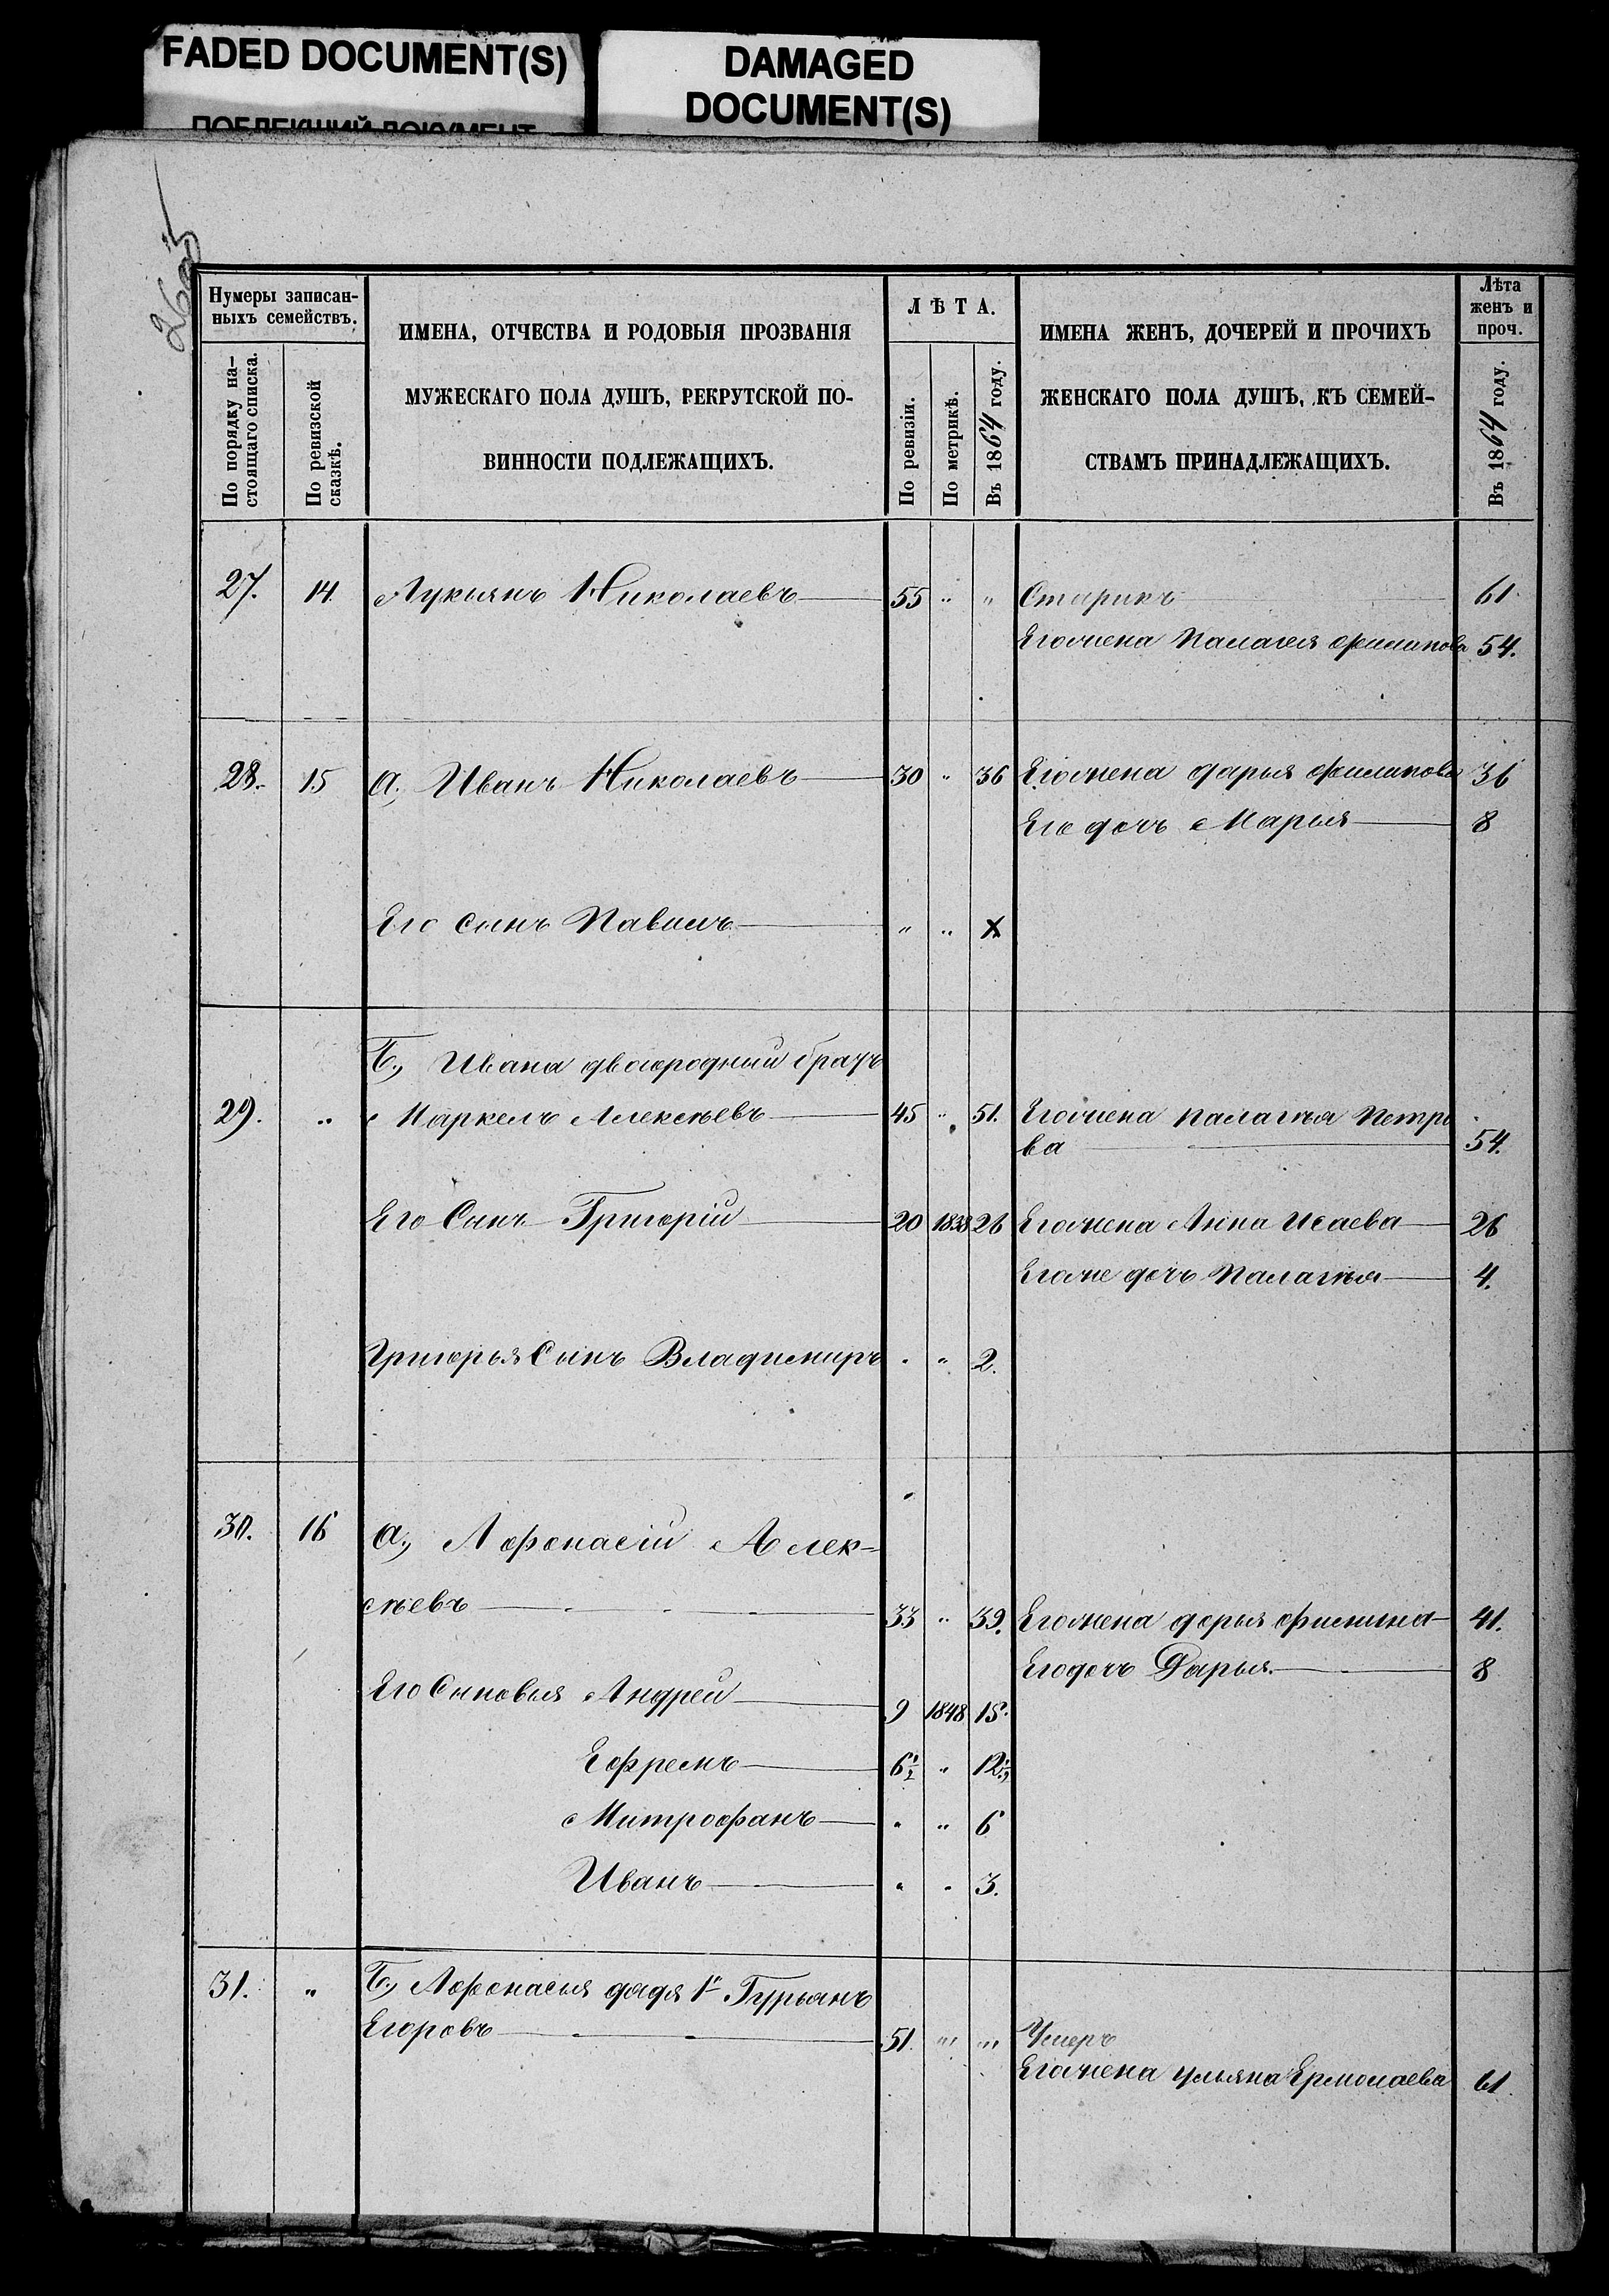 FADED DOCUMENT(S)
ПОБЛЕКШИЙ ДОКУМЕНТ
DAMAGED
DOCUMENT(S)
Нумеры записан-
ныхъ семействъ.
По порядку на-
стоящаго списка.
По ревизской
сказкѣ.
ИМЕНА, ОТЧЕСТВА И РОДОВЫЯ ПРОЗВАНІЯ
МУЖЕСКАГО ПОЛА ДУШЪ, РЕКРУТСКОЙ ПО-
ВИННОСТИ ПОДЛЕЖАЩИХЪ.
ЛѢТА.
По ревизіи.
По метрикѣ.
Въ 1864 году.
ИМЕНА ЖЕНЪ, ДОЧЕРЕЙ И ПРОЧИХЪ
ЖЕНСКАГО ПОЛА ДУШЪ, КЪ СЕМЕЙ-
СТВАМЪ ПРИНАДЛЕЖАЩИХЪ.
Лѣта
женъ и
проч.
Въ 1864 году.
27. 14. Лукьянъ Николаевъ 55 " " Старикъ 61.
Его жена Палагея Филипова 54.
28. 15 а, Иванъ Николаевъ 30 " 36 Его жена дарья Филипова 36
Его дочь Марья 8
Его сынъ Павилъ " " X
Б., Ивана двоюродний братъ
29. " Маркелъ Алексѣевъ 45 " 51. Его жена палагѣя Петро
ва 54.
Его Сынъ Григорій 20 1838 26 Его жена Анна Исаева 26
Его же дочь Палагѣя 4.
Григорья Сынъ Владимиръ " " 2.
30. 16 а., Афонасій Алек-
сѣевъ 33 " 39. Его жена дорья Фи 41.
Его дочь Дарья 8
Его Сыновья Андрей 9 1848 15.
Ефремъ 6½ " 12½
Митрофанъ " " 6
Иванъ " " 3.
31. " Б., Афонасья дядя 1й Гурьянъ
Егоровъ 51. " " Умеръ
Его жена ульяна Ермолаева 61.